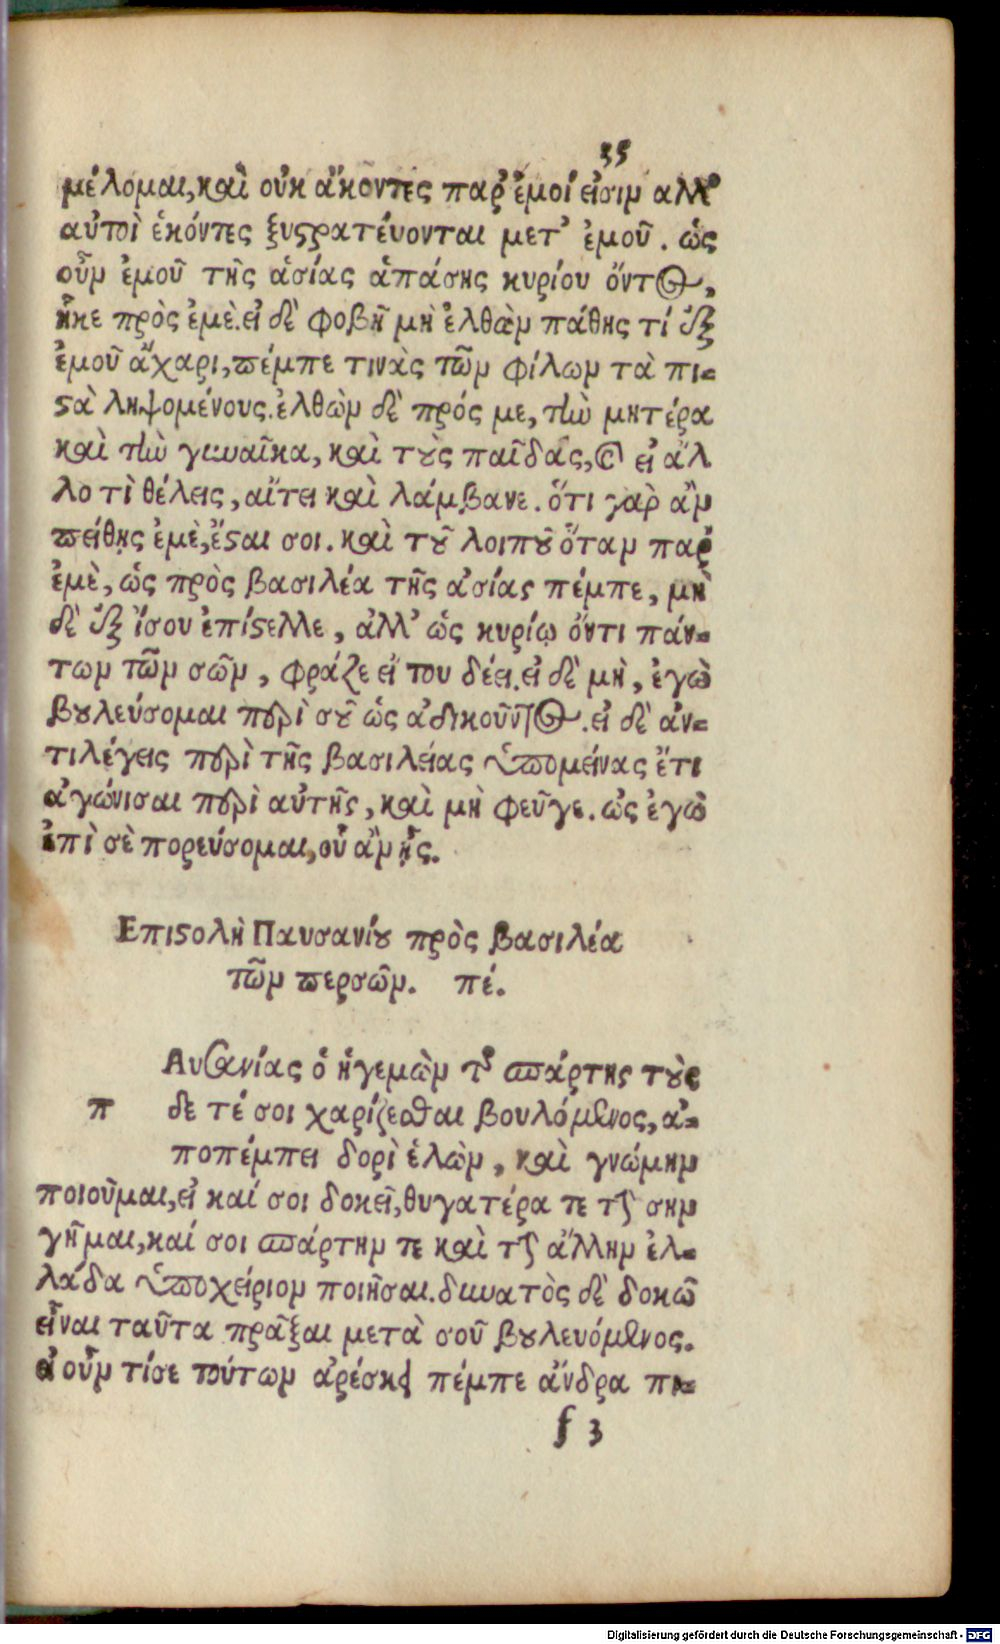 35
μέλομαι, καὶ οὐκ ἄκοντες παρ᾽ ἐμοί εἰσιν αλλ᾽
αὐτοὶ ἑκόντες ξυςρατέυονται μετ᾽ ἐμοῦ. ὡς
οὖν ἐμοῦ τῆς ἀσίας ἁπάσης κυρίου ὄντος,
ἧκε πρὸς ἐμὲ. εἰ δὲ φοβῇ μὴ ἐλθὼν πάθης τί ἐξ
ἐμοῦ ἄχαρι, πέμπε τινὰς τῶν φίλων τὰ πι-
ςὰ ληψομένους. ἐλθὼν δὲ πρός με, τὴν μητέρα
καὶ τὴν γυναῖκα, καὶ τοὺς παῖδας, καὶ εἰ ἄλ
λο τὶ θέλεις, αἴτει καὶ λάμβανε. ὅτι γαρ ἂν
πείθης ἐμὲ, ἔςαι σοι. καὶ τοῦ λοιποῦ ὅταν παρ᾽
ἐμὲ, ὡς πρὸς βασιλέα τῆς ἀσίας πέμπε, μὴ
δὲ ἐξ ἴσου ἐπίςελλε, ἀλλ᾽ ὡς κυρίῳ ὄντι πάν-
των τῶν σῶν, φράζε εἴ του δέει. εἰ δὲ μὴ, ἐγὼ
βουλεύσομαι περὶ σοῦ ὡς ἀδικοῦντος. εἰ δὲ ἀν-
τιλέγεις περὶ τῆς βασιλείας ὑπομείνας ἔτι
ἀγώνισαι περὶ αὐτῆς, καὶ μὴ φεῦγε. ὡς ἐγὼ
ἐπὶ σὲ πορεύσομαι, οὗ ἂν ᾖς.
Επιςολὴ Παυσανίου πρὸς βασιλέα
τῶν περσῶν. πέ.
Αυσανίας ὁ ἡγεμὼν τῆς σπάρτης τούς
π δε τέ σοι χαρίζεσθαι βουλόμενος, ἀ-
ποπέμπει δορὶ ἑλὼν, καὶ γνώμην
ποιοῦμαι, εἰ καί σοι δοκεῖ, θυγατέρα τε τὴν σην
γῆμαι, καί σοι σπάρτην τε καὶ τὴν ἄλλην ἑλ-
λάδα ὑποχείριον ποιῆσαι. δυνατὸς δὲ δοκῶ
εἶναι ταῦτα πρᾶξαι μετὰ σοῦ βουλευόμενος.
εἰ οὖν τίσε τούτων ἀρέσκει πέμπε ἄνδρα πι-
f 3
Digitalisierung gefördert durch die Deutsche Forschungsgemeinschaft - DFG